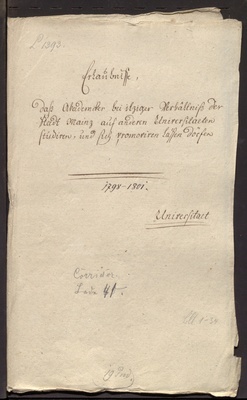 L 1393.
Erlaubnisse,
Daß Akademiker bei itziger Verhältniß der
Stadt Mainz auf anderen Universitaeten
studieren, und sich promoviren laßen dorfen
1798-1801.
Universitaet
Corridor
Lade 41.